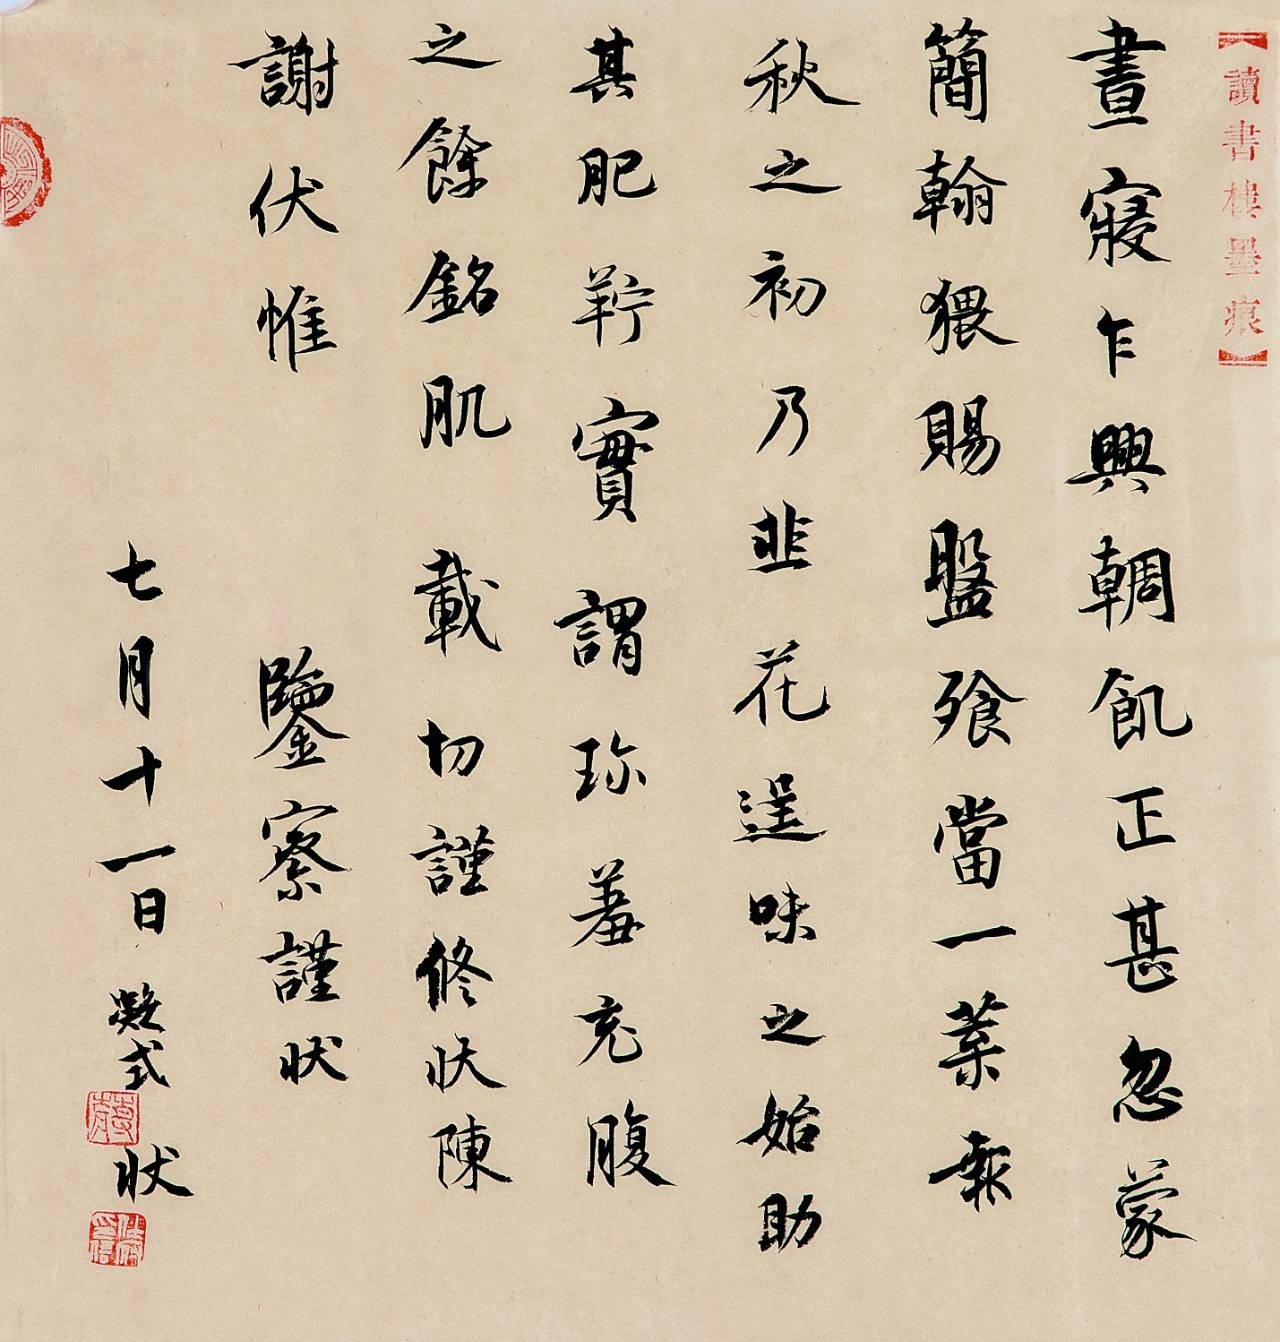 【讀書樓墨痕】
晝寢乍興輖飢正甚忽蒙
簡翰猥賜盤飧當一葉報
秋之初乃韭花逞味之始助
其肥羜實謂珍羞充腹
之餘銘肌載切謹修狀陳
謝伏惟
鑒察謹狀
七月十一日
凝式
狀